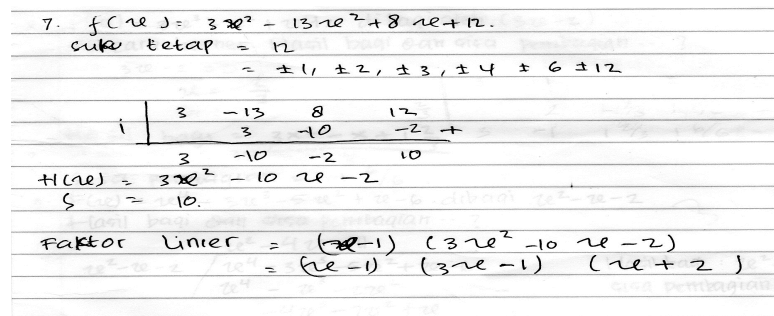 7. f(x) = 3x² - 13x² + 8x + 12.
suku tetap = 12
= ±1, ±2, ±3, ±4 ± 6 ±12
1 | 3 -13 8 12
3 -10 -2 +
3 -10 -2 10
H(x) = 3x² - 10x - 2
S = 10.
Faktor linier = (x-1) (3x² -10x - 2)
= (x-1) (3x-1) (x+2)